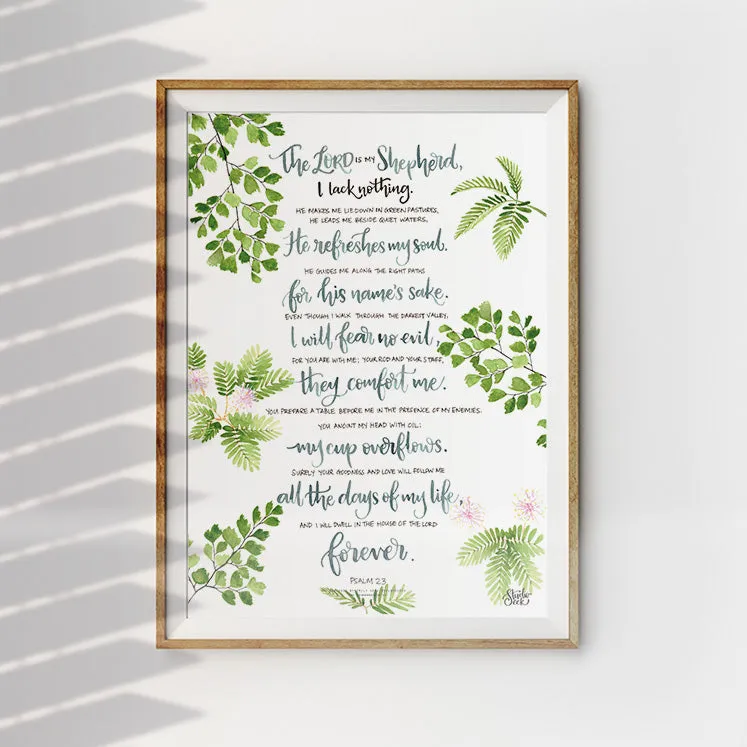 The LORD IS MY Shepherd,
I lack nothing.
HE MAKES ME LIE DOWN IN GREEN PASTURES,
HE LEADS ME BESIDE QUIET WATERS,
He refreshes my soul.
HE GUIDES ME ALONG THE RIGHT PATHS
for his name's sake.
EVEN THOUGH I WALK THROUGH THE DARKEST VALLEY,
I will fear no evil,
FOR YOU ARE WITH ME; YOUR ROD AND YOUR STAFF,
they comfort me.
YOU PREPARE A TABLE BEFORE ME IN THE PRESENCE OF MY ENEMIES.
YOU ANOINT MY HEAD WITH OIL;
my cup overflows.
SURELY YOUR GOODNESS AND LOVE WILL FOLLOW ME
all the days of my life,
AND I WILL DWELL IN THE HOUSE OF THE LORD
forever.
PSALM 23
Studio
eek